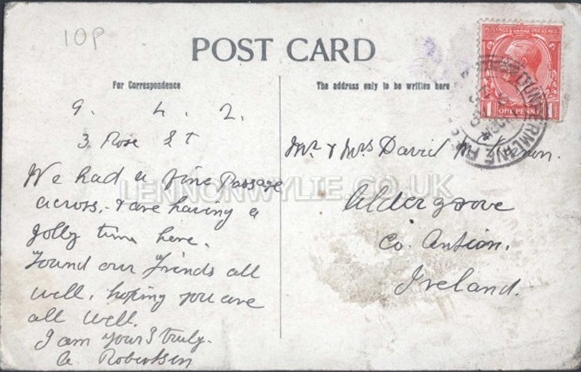 10P
POST CARD
For Correspondence
The address only to be written here
9. 4. 2.
3 Rose St
We had a fine Passage
across, & are having a
Jolly time here.
Found our Friends all
well, hoping you are
all well.
I am yours truly.
A. Robertson
Mr & Mrs David
Aldergrove
Co. Antrim.
Ireland.
LENNONWYLIE.CO.UK
DUNFERMLINE
1 ONE PENNY 1